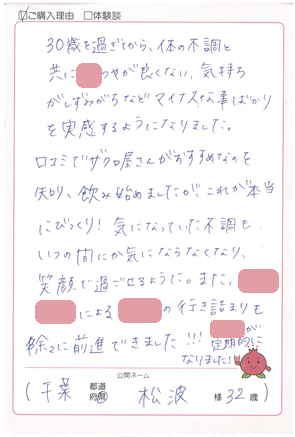 ☑ご購入理由 □体験談
30歳を過ぎてから、体の不調と
共に つやが良くない、気持ち
がしずみがちなどマイナスな事ばかり
を実感するようになりました。
口コミでザクロ屋さんがおすすめなのを
知り、飲み始めましたが、これが本当
にびっくり！気になっていた不調も
いつの間にか気にならなくなり、
笑顔で過ごせるように。また、
による の行き詰まりも
徐々に前進できました!!!
が
定期的に
なりました!!
公開ネーム
(千葉 都道府県 松波 様 32歳)